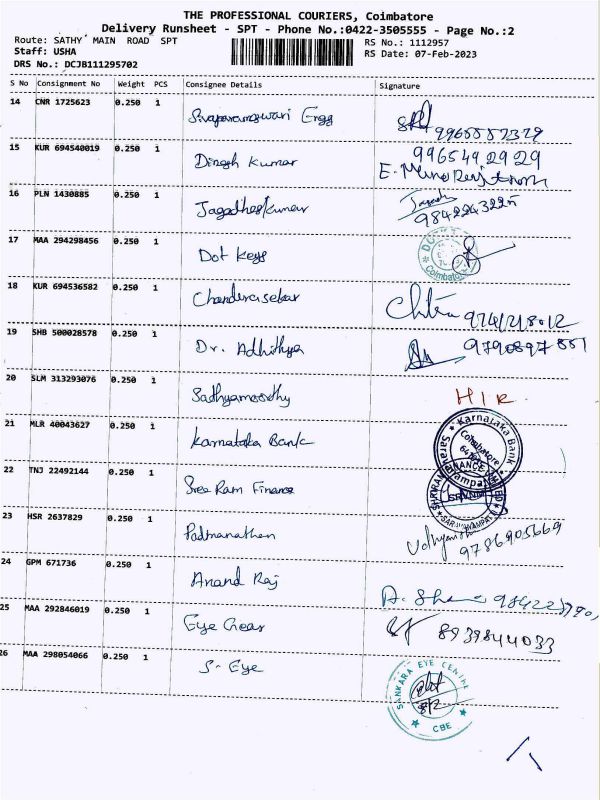 THE PROFESSIONAL COURIERS, Coimbatore
Delivery Runsheet - SPT - Phone No.:0422-3505555 - Page No.:2
Route: SATHY MAIN ROAD SPT
Staff: USHA
DRS No.: DCJB111295702
RS No.: 1112957
RS Date: 07-Feb-2023
S No Consignment No Weight PCS Consignee Details Signature
14 CNR 1725623 0.250 1 Sivaparameswari Engg
15 KUR 694540019 0.250 1 Dinesh Kumar 9965492929
16 PLN 1430885 0.250 1 Jagadheskumar
17 MAA 294298456 0.250 1 Dot Keys Coimbatore
18 KUR 694536582 0.250 1 Chandersekar
19 SHB 500028578 0.250 1 Dr. Adhithya
20 SLM 313293076 0.250 1 Sathyamoorthy HIR
21 MLR 40043627 0.250 1 Karnataka Bank Karnataka Bank Coimbatore
22 TNJ 22492144 0.250 1 Sree Ram Finance
23 HSR 2637829 0.250 1 Padmanathen 9786905669
24 GPM 671736 0.250 1 Anand Raj
25 MAA 292846019 0.250 1 Eye Gear 8939844033
26 MAA 298054066 0.250 1 S- Eye SANKARA EYE CENTRE CBE